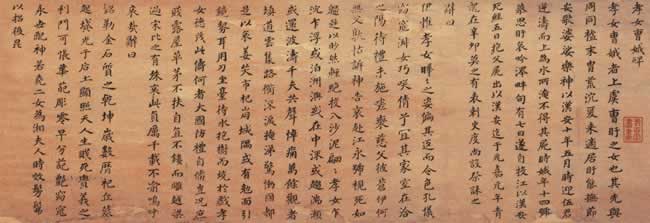 孝女曹娥碑
孝女曹娥者上虞曹盱之女也其先與
周同祖末胄荒沉爰來適居盱能撫節
安歌婆娑樂神以漢安年五月時迎伍
君逆濤而上為水所淹不得其屍時娥年十四號
慕思盱哀吟澤畔旬有七日遂自投江
死經五日抱父屍出以漢安迄于元嘉元年青
龍在辛卯莫之有表度尚設祭誄之
辭曰
伊惟孝女曄曄之姿偏其返而令色孔儀
窈窕淑女巧笑倩兮宜其家室在洽
之陽待禮未施嗟喪慈父彼蒼伊何
無父孰怙訴神告哀赴江永號視死如
歸是以眇然輕絕投入沙泥翩翩孝女乍
沉乍浮或泊洲渚或在中流或趨湍瀨
或還波濤千夫失聲悼痛萬餘觀者
填道雲集路衢流淚掩涕驚慟國都
是以哀姜哭市杞崩城隅或有尅面引
鏡剺耳用刀坐臺待水抱樹而燒於戲孝
女德茂此儔何者大國防禮自脩豈況庶
賤露屋草茅不扶自直不鏤而雕越梁
過宋比之有殊哀此貞厲千載不渝嗚呼
哀哉辭曰
銘勒金石質之乾坤歲數曆祀丘墓
起墳光于后土顯照天人生賤死貴義之
利門何悵華落彫零早分葩艷窈窕
永世配神若堯二女為湘夫人時效髣髴
以招後昆